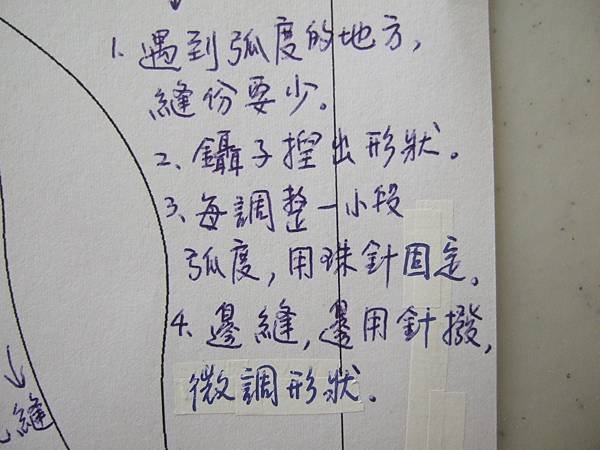 1. 遇到弧度的地方,
縫份要少。
2、鑷子捏出形狀。
3、每調整一小段
弧度,用珠針固定。
4、邊縫,邊用針撥,
微調形狀。
縫